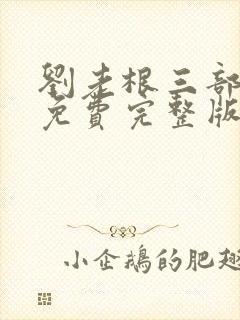 劉老根三部
免費完整版
小企鵝的肥翅